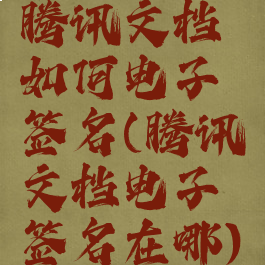 腾讯文档
如何电子
签名(腾讯
文档电子
签名在哪)